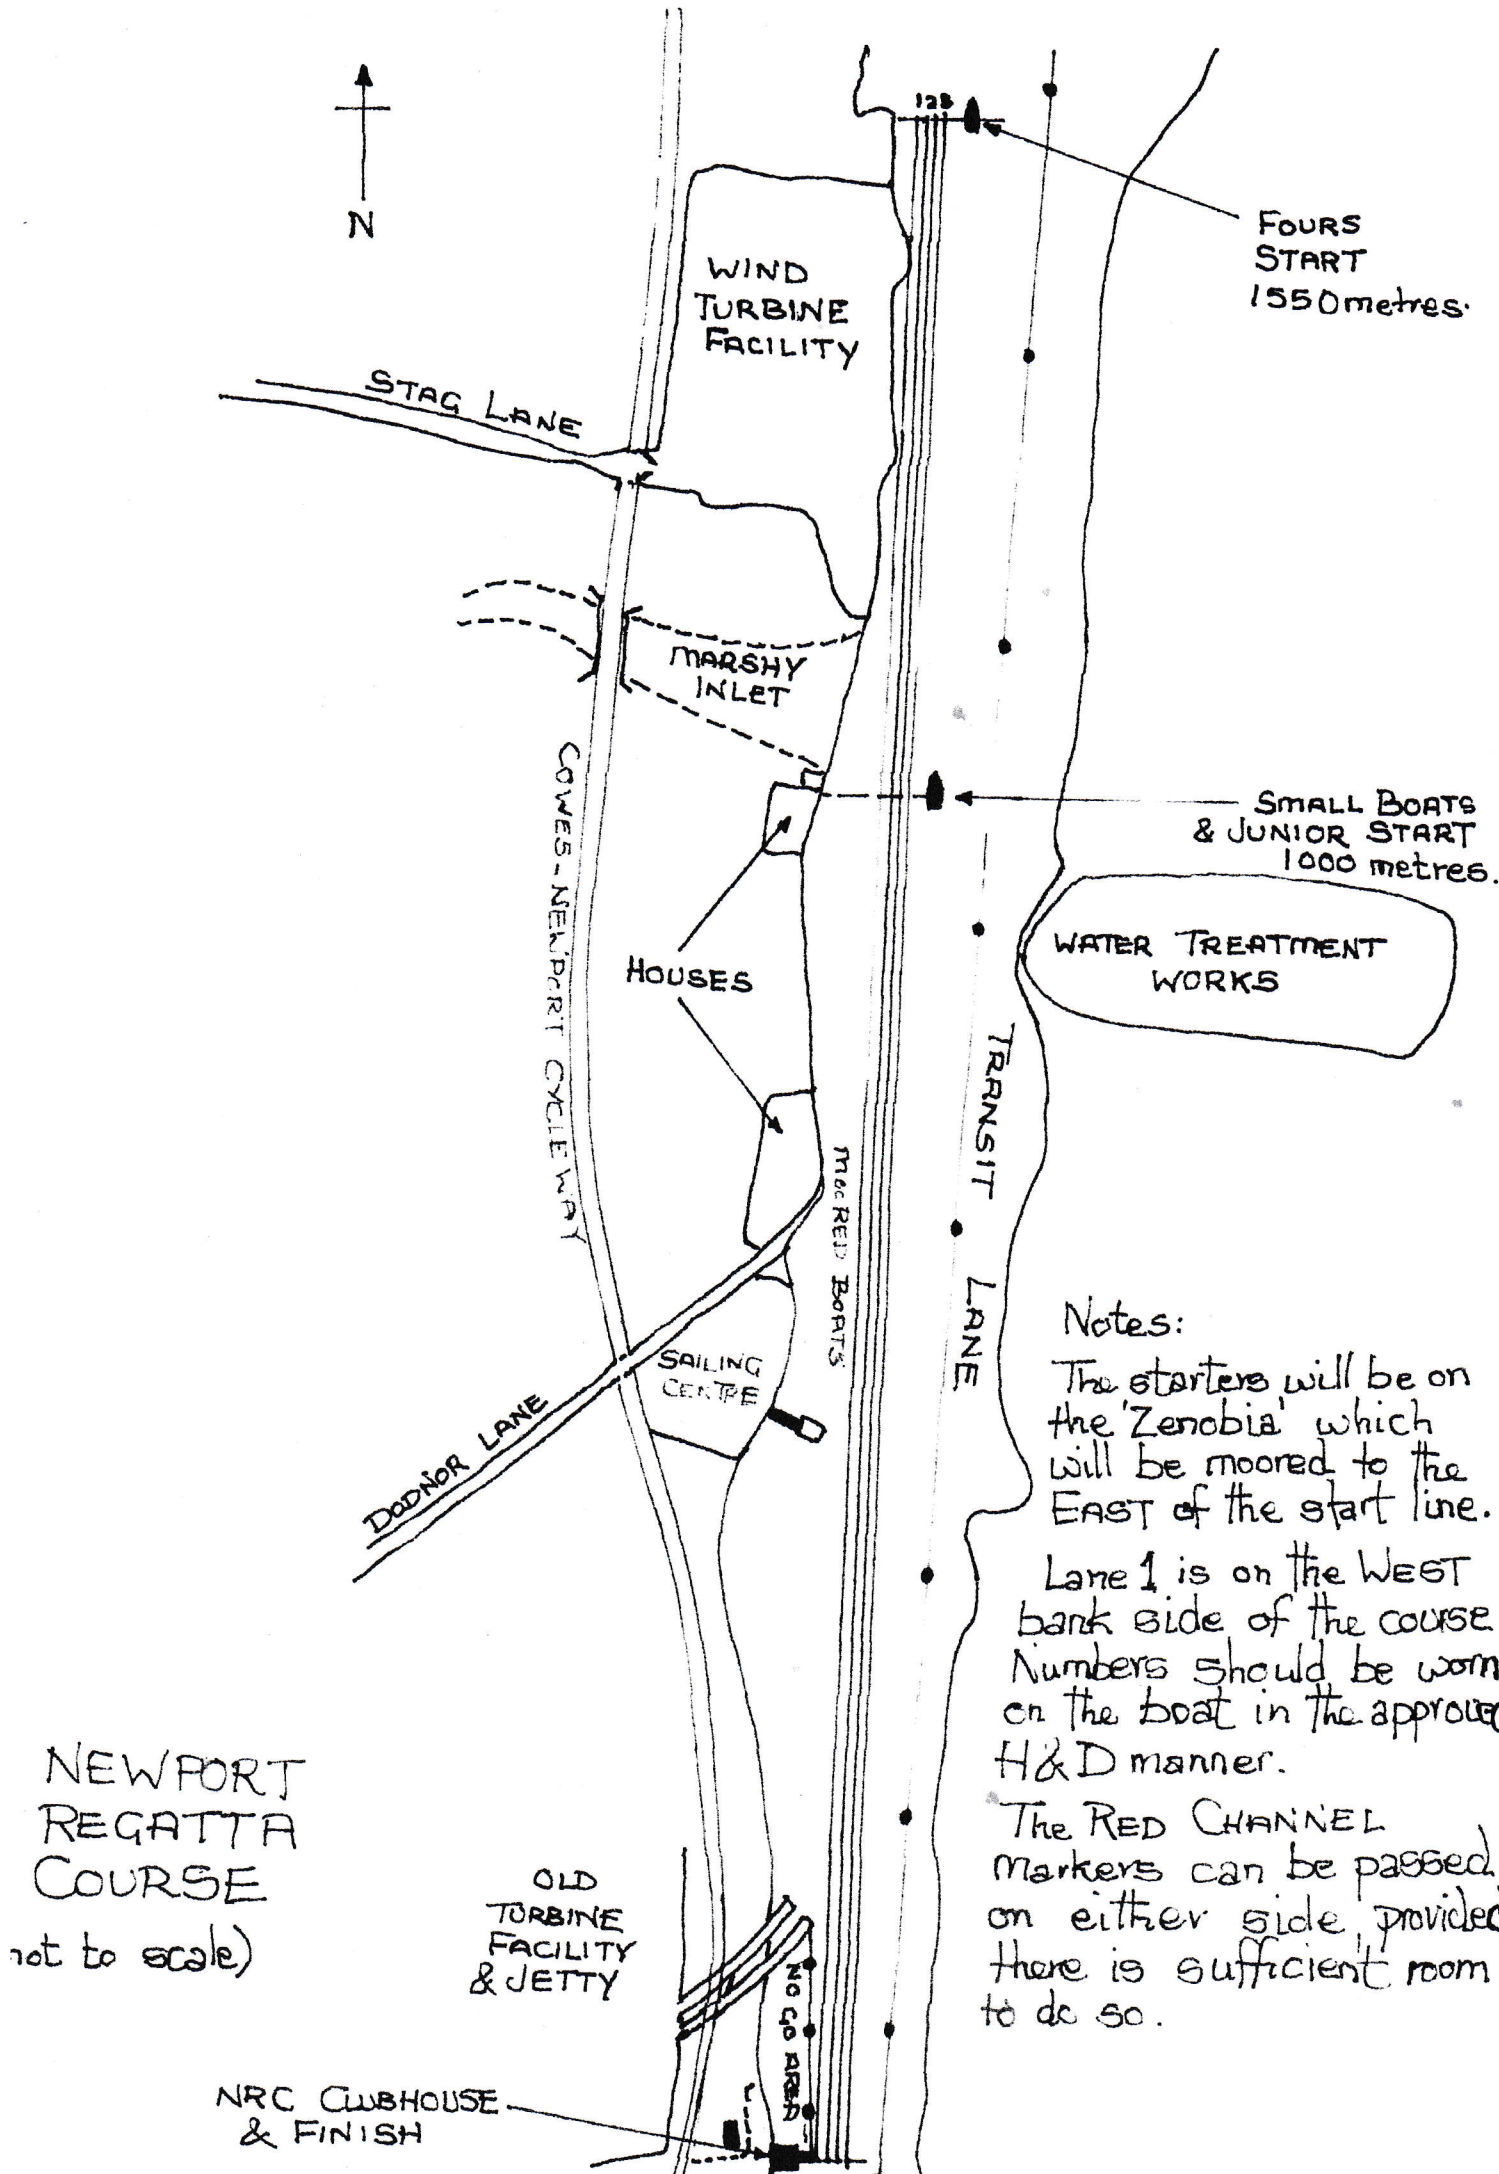 N
123
FOURS
START
1550 metres.
WIND
TURBINE
FACILITY
STAG LANE
MARSHY
INLET
COWES-NEWPORT CYCLEWAY
SMALL BOATS
& JUNIOR START
1000 metres.
WATER TREATMENT
WORKS
HOUSES
TRANSIT LANE
MOORED BOATS
SAILING
CENTRE
DODNOR LANE
Notes:
The starters will be on
the 'Zenobia' which
will be moored to the
EAST of the start line.
Lane 1 is on the WEST
bank side of the course
Numbers should be worn
on the boat in the approved
H&D manner.
The RED CHANNEL
markers can be passed,
on either side, provided
there is sufficient room
to do so.
NEWPORT
REGATTA
COURSE
not to scale)
OLD
TURBINE
FACILITY
& JETTY
NO GO AREA
NRC CLUBHOUSE
& FINISH